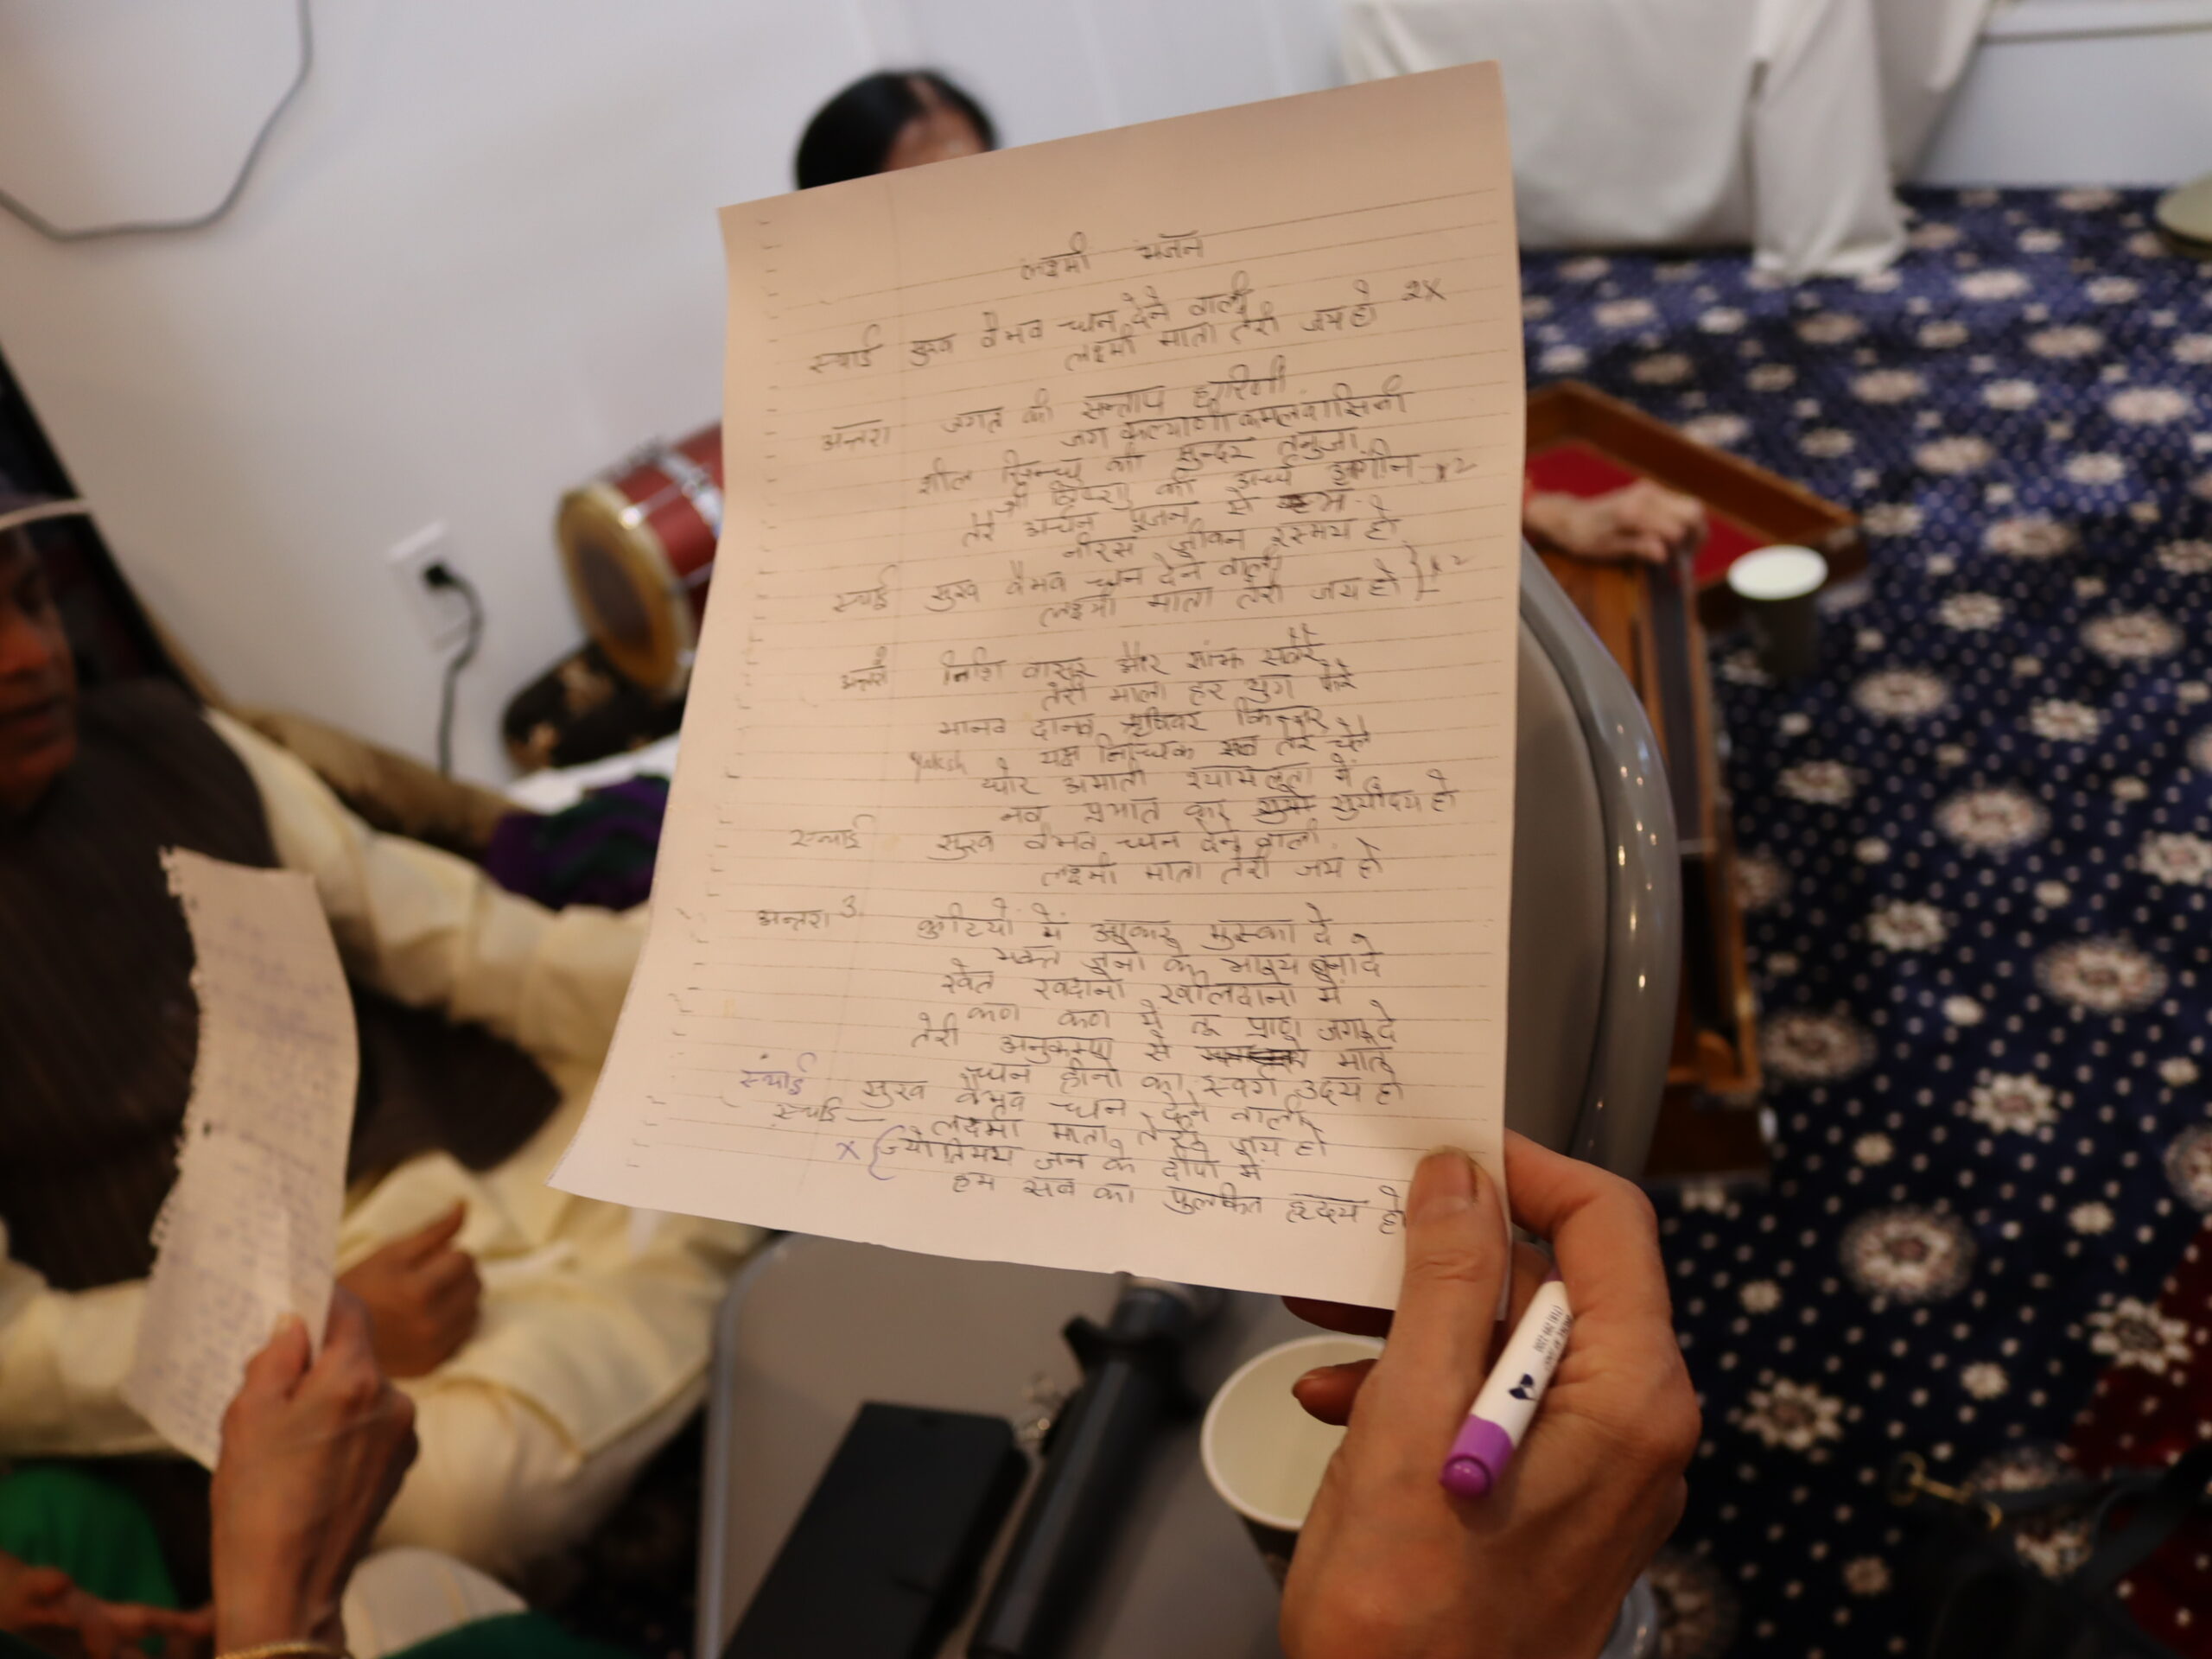 लक्ष्मी भजन
स्थाई सुख वैभव धन देने वाली
लक्ष्मी माता तेरी जय हो 2x
अन्तरा जगत की सन्ताप हारिणी
जग कल्याणी कमलवासिनी
शील सिन्धु की सुन्दर तनुजा
श्री की x2
तेरे अर्चन पूजन से
नीरस जीवन रसमय हो
स्थाई सुख वैभव धन देने वाली
लक्ष्मी माता तेरी जय हो } x2
अन्तरा निशि वासर और सांझ सवेरे
तेरी माला हर युग फेरे
मानव दानव ऋषिवर किन्नर
Yaksh यक्ष सब तेरे चेरे
घोर अमाती श्यामलता में
नव प्रभात का सूर्योदय हो
स्थाई सुख वैभव धन देने वाली
लक्ष्मी माता तेरी जय हो
अन्तरा 3. कुटियों में आकर मुस्का दे
भक्त जनो के भाग्य बना दे
खेत खदानो खलिदानो में
कण कण में तू प्राण जगा दे
तेरी अनुकम्पा से माते
धन हीनो का स्वर्ण उदय हो
स्थाई सुख वैभव धन देने वाली
स्थाई — लक्ष्मी माता तेरी जय हो
x { ज्योतिमय जन के दीपो में
हम सब का पुलकित हृदय हो